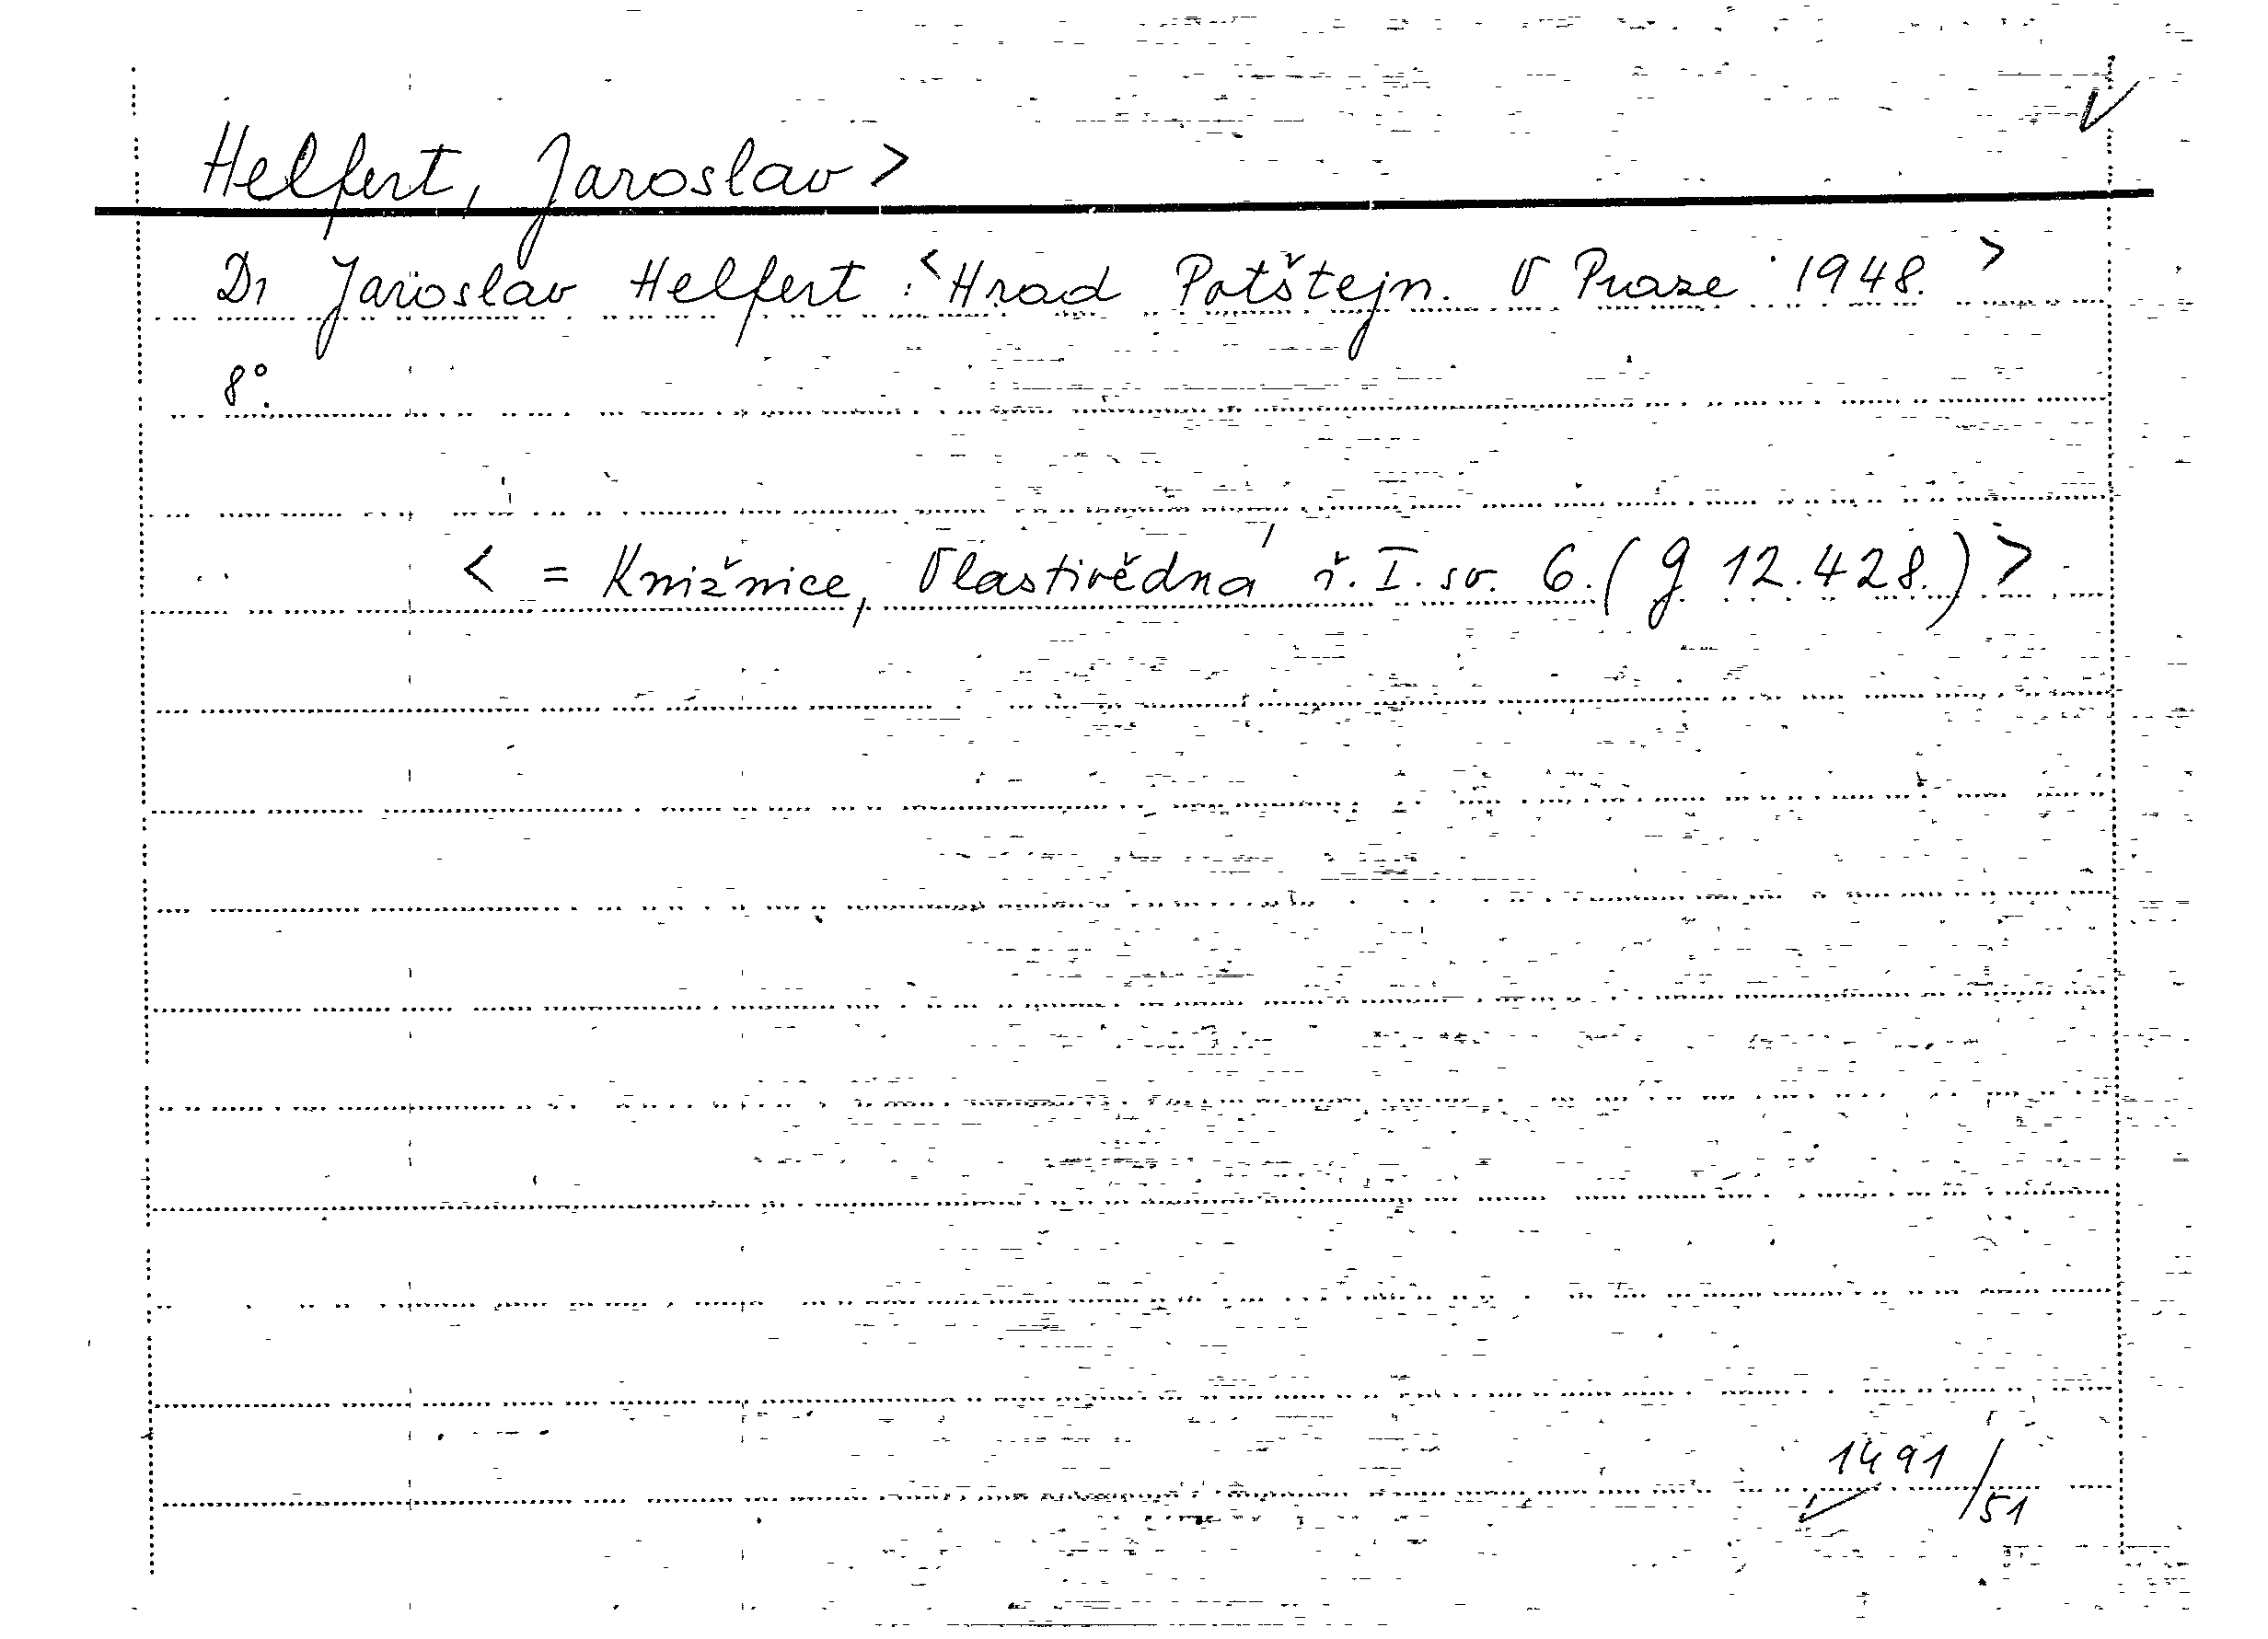 Helfert, Jaroslav >
Dr Jaroslav Helfert : <Hrad Potštejn. V Praze 1948. >
8°.
< = Knižnice, Vlastivědná ř. I. sv. 6. (g 12.428.) >
1491/51